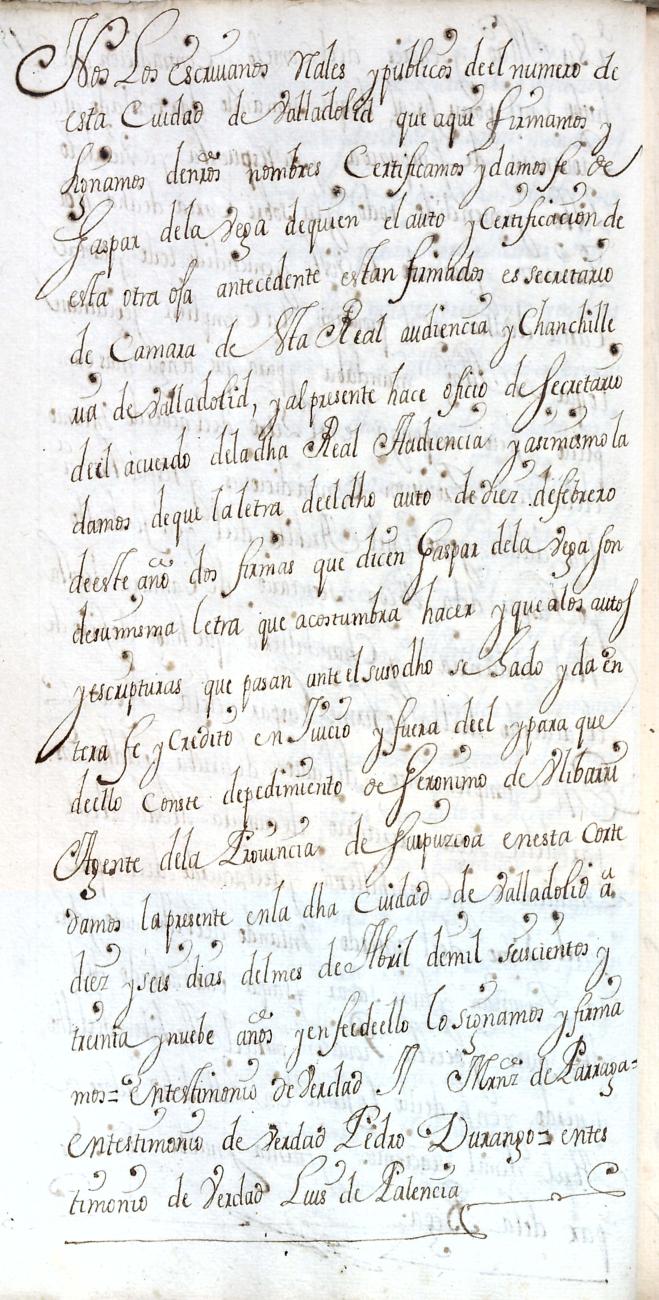 Nos Los escriuanos Rales y publicos de el numero de
esta Ciudad de Valladolid que aqui firmamos y
signamos de nros nombres Certificamos y damos fe que
Gaspar de la Vega de quien el auto y Certificacion de
esta otra oja antecedente estan firmados es secretario
de Camara de Sta Real audiencia y Chanchille
ria de Valladolid, y al presente hace oficio de secretario
de el acuerdo de la dha Real Audiencia y asimismo la
damos de que la letra de el dho auto de diez de febrero
de este año dos firmas que dicen Gaspar de la Vega son
de su misma letra que acostumbra hacer y que a los autos
y escripturas que pasan ante el susodho se ha dado y da en
tera fe y Credito en Juicio y fuera de el y para que
de ello Conste de pedimiento de Geronimo de Vlibarri
Agente de la Prouincia de Guipuzcoa en esta Corte
damos la presente en la dha Ciudad de Valladolid a
diez y seis dias del mes de Abril de mil seiscientos y
treinta y nuebe años y en fee de ello lo signamos y firma
mos= en testimonio de Verdad // Mrnz de Parraga=
en testimonio de Verdad Pedro Durango= en tes
timonio de Verdad Luis de Palencia